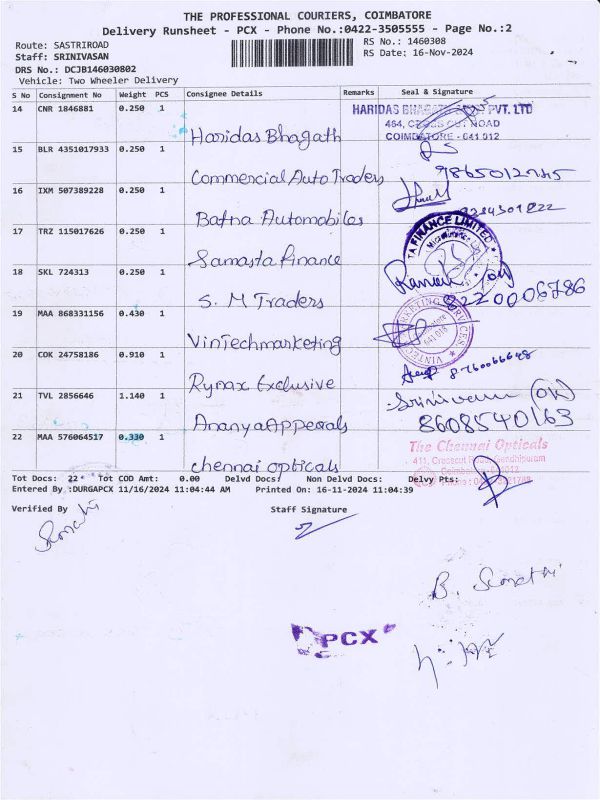 THE PROFESSIONAL COURIERS, COIMBATORE
Delivery Runsheet - PCX - Phone No.:0422-3505555 - Page No.:2
Route: SASTRIROAD
RS No.: 1460308
Staff: SRINIVASAN
RS Date: 16-Nov-2024
DRS No.: DCJB146030802
Vehicle: Two Wheeler Delivery
S No Consignment No Weight PCS Consignee Details Remarks Seal & Signature
14 CNR 1846881 0.250 1
HARIDAS BHAGATH PVT. LTD
464, CROSS CUT ROAD
COIMBATORE - 641 012
Haridas Bhagath
15 BLR 4351017933 0.250 1
Commercial Auto Traders 9865012745
16 IXM 507389228 0.250 1
Batna Automobiles
17 TRZ 115017626 0.250 1
TA FINANCE LIMITED
Samasta Finance
18 SKL 724313 0.250 1
S. M Traders 8220006786
19 MAA 868331156 0.430 1
MARKETING SERVICES
641 018
VINTECH
VinTechmarketing
20 COK 24758186 0.910 1
8760066648
Rynax Exclusive
21 TVL 2856646 1.140 1
Srinivasan (ON)
AnanyaAppearals 8608540163
22 MAA 576064517 0.330 1
The Chennai Opticals
411, Crosscut Road, Gandhipuram
chennai opticals
Tot Docs: 22 Tot COD Amt: 0.00 Delvd Docs: Non Delvd Docs: Delvy Pts:
Entered By :DURGAPCX 11/16/2024 11:04:44 AM Printed On: 16-11-2024 11:04:39
Verified By Staff Signature
PCX